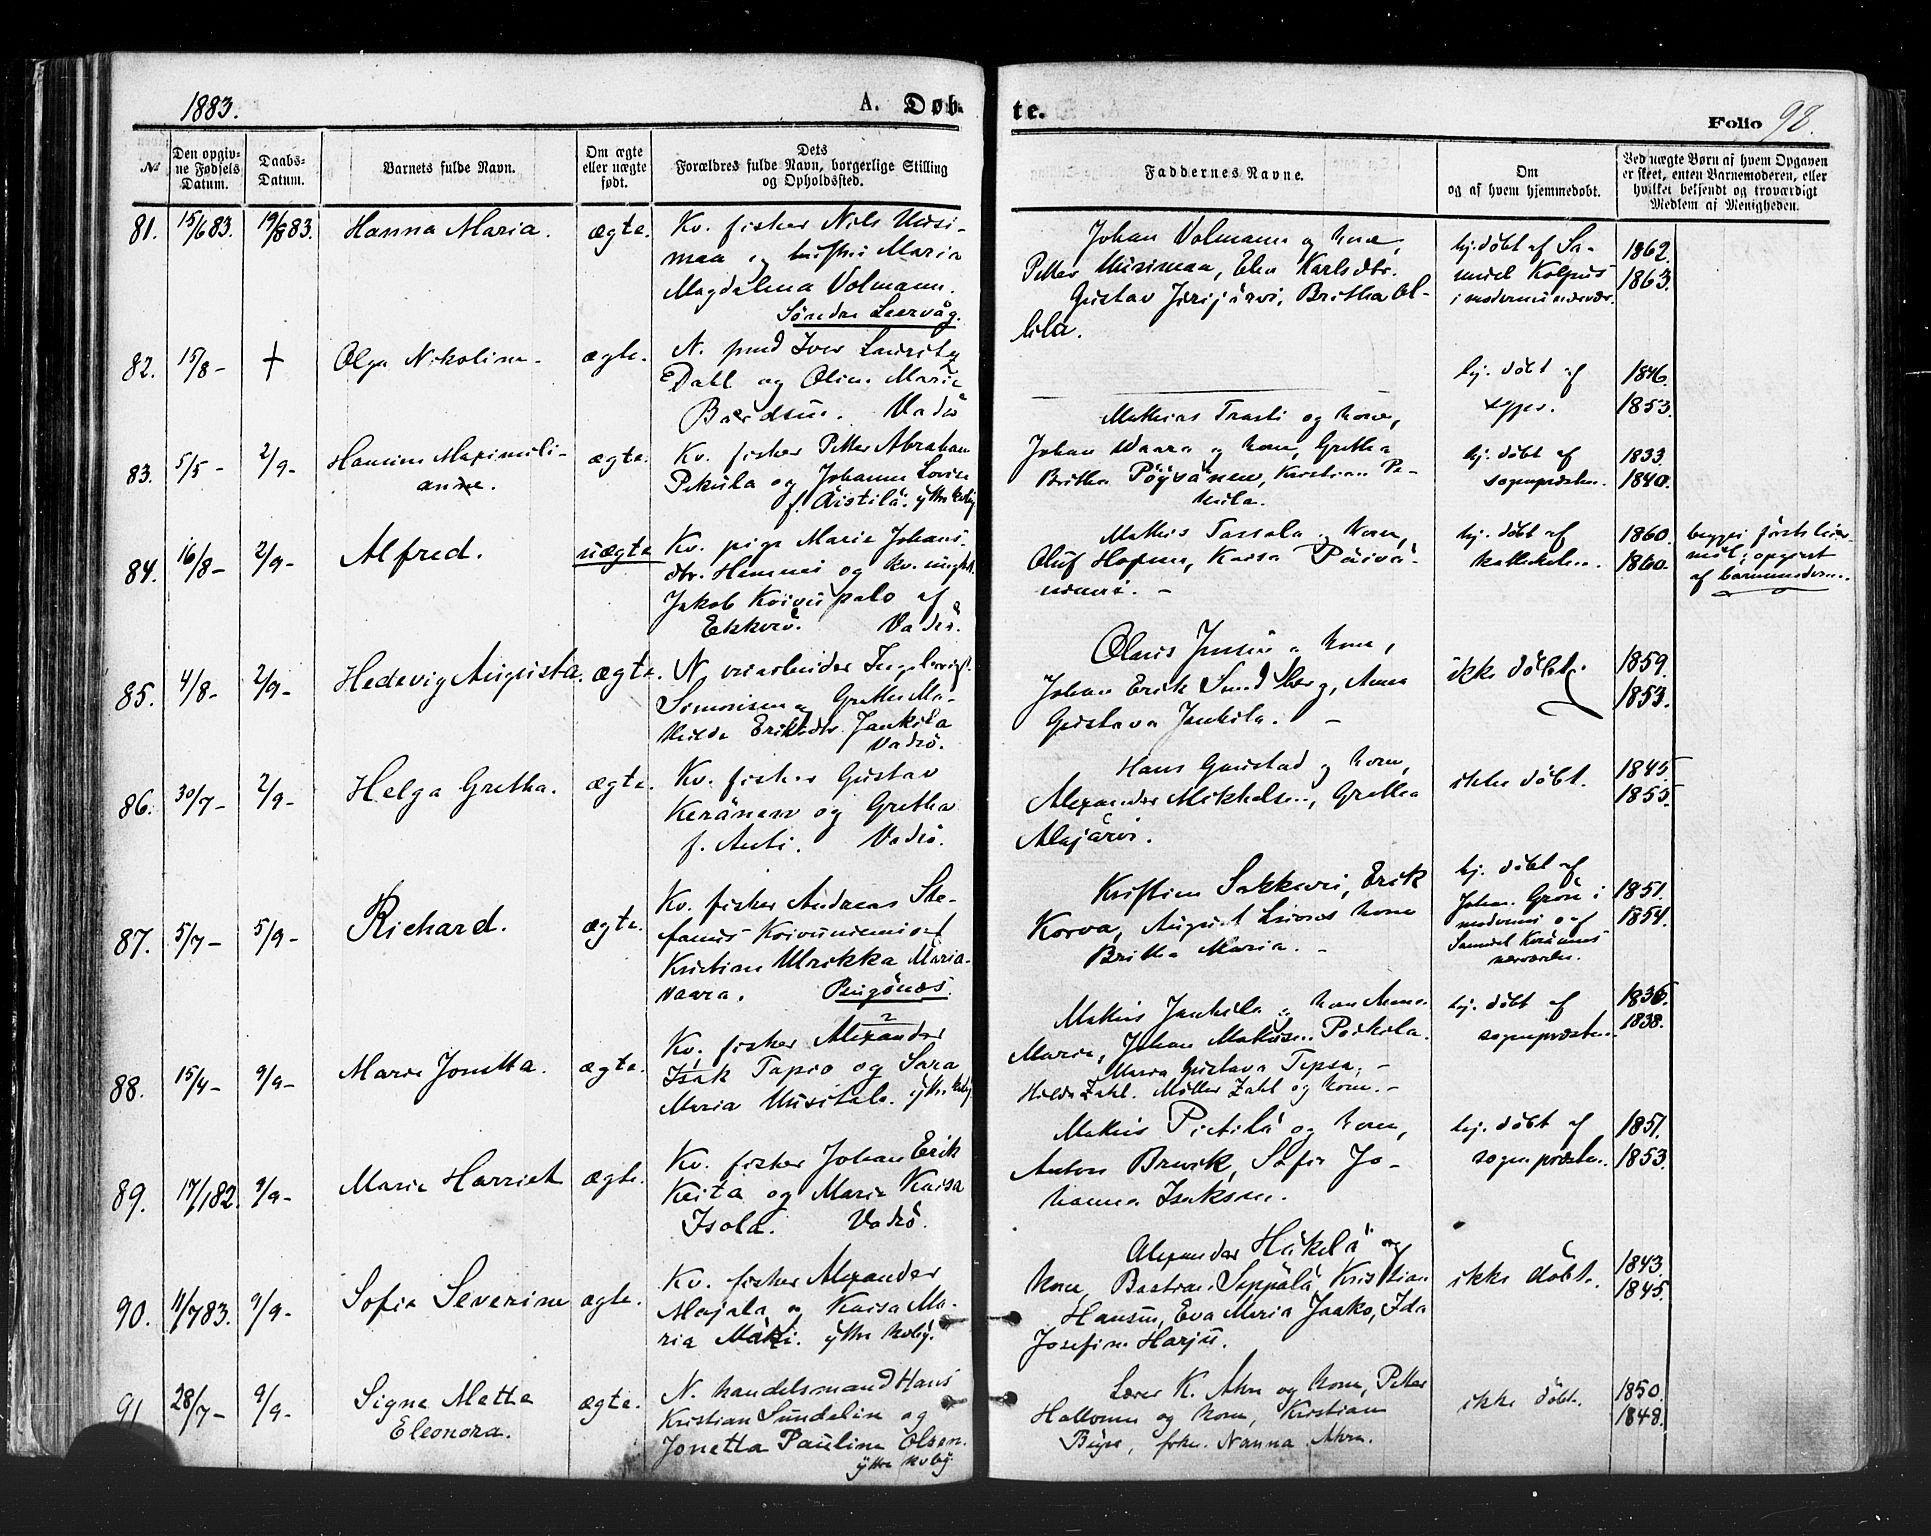 1883.
A. Døb-
te.
Folio 98.
№
Den opgiv-
ne Fødsels
Datum.
Daabs-
Datum.
Barnets fulde Navn.
Om ægte
eller uægte
født.
Dets
Forældres fulde Navn, borgerlige Stilling
og Opholdssted.
Faddernes Navne.
Om
og af hvem hjemmedøbt.
Ved uægte Børn af hvem Opgaven
er skeet, enten Barnemoderen, eller
hvilket bekjendt og troværdigt
Medlem af Menigheden.
81. 15/6 83. 19/8 83. Hanna Maria. ægte.
Kv. fisker Nils Uusi-
maa og hustru Maria
Magdalena Volmann.
Søndre Leervåg.
Johan Volmann og kone,
Petter Uusimaa, Elen Karlsdtr.
Gustav Jerijärvi, Britha Ol-
lila.
hj. døbt af Sa-
muel Kolpus
i moderens nærvær.
1862.
1863.
82. 15/8 - + Olga Nikoline. ægte.
N. smed Iver Lauritz
Dahl og Oline Marie
Bærdsen. Vadsö
hj. døbt af
sgpr.
1846.
1853.
83. 5/5 - 2/9 - Hansine Maximili-
anne. ægte.
Kv. fisker Petter Abraham
Pekula og Johanne Lovise
f. Aistilä. ytre kvby
Mathias Trasti og kone,
Johan Waara og kone, Gretha
Britha Pöyvänen, Kristian Pe-
kula.
hj. døbt af
sognepræsten.
1833.
1840.
84. 16/8 - 2/9 - Alfred. uægte
Kv. pige Marie Johans-
dtr. Hemmei og kv. ungk.
Jakob Koivupalo af
Ekkerö. Vadsö.
Mathis Tassala og kone,
Oluf Hopen, Kaisa Päivä-
niemi. -
hj. døbt af
kateketen.
1860.
1860.
begges første leier-
mål; opgivet
af barnemoderen.
85. 4/8 - 2/9 - Hedevig Augusta. ægte.
N. veiarbeider Ingebrigt
Simonsen og Grethe Ma-
thilde Eriksdtr. Jankila
Vadsö.
Olaus Jensen og kone,
Johan Erik Sundberg, Anna
Gustava Jankila. -
ikke döbt.
1859.
1853.
86. 30/7 - 2/9 - Helga Gretha. ægte.
Kv. fisker Gustav
Keränen og Gretha
f. Anti. Vadsö.
Hans Gaustad og kone,
Alexander Mikkelsen, Gretha
Alajärvi.
ikke döbt.
1845
1855
87. 5/7 - 5/9 - Richard. ægte.
Kv. fisker Andreas Ste-
fanus Koivuniemi og
Kristine Ulrikka Maria
Vaara. Bugönæs.
Kristian Sakkeri, Erik
Korva, August Lurnes kone
Britha Maria. -
hj. døbt af
Johan Grön i
moderens og
Samuel Keränens
nærværelse.
1851.
1854.
88. 15/4 - 9/9 - Marie Jonetta. ægte.
Kv. fisker Alexander
Isak Tapio og Sara
Maria Uusitalo. ytre kvby
Mathis Jankila og kone Anna
Maria, Johan Mathisen Poikela.
Maria Gustava Tepsa, -
Hilda Zahl. Möller Zahl og kone. -
hj. døbt af
sognepræsten.
1836.
1838.
89. 17/1 82. 9/9 - Marie Harriet ægte.
Kv. fisker Johan Erik
Keita og Marie Kaisa
Isola. Vadsö.
Mathis Pietilä og kone,
Anton Brevik, Sofie Jo-
hanna Isaksen.
hj. døbt af
sognepræsten.
1851.
1853.
90. 11/7 83. 9/9 - Sofie Severine ægte.
Kv. fisker Alexander
Majala og Kaisa Ma-
ria Mäki. ytre kvby.
Alexander Heikelä og
kone, Bastian Seppälä, Kristian
Hansen, Eva Maria Jaako, Ida
Josefine Harju.
ikke döbt.
1843.
1845.
91 28/7 - 9/9 - Signe Mette
Eleonora. ægte.
N. handelsmand Hans
Kristian Sundelin og
Jonetta Pauline Olsen.
ytre kvby
Lærer K. Ahn og kone, Petter
Hallonen og kone, Kristian
Beyer, frkn. Nanna Ahn.
ikke döbt.
1850.
1848.